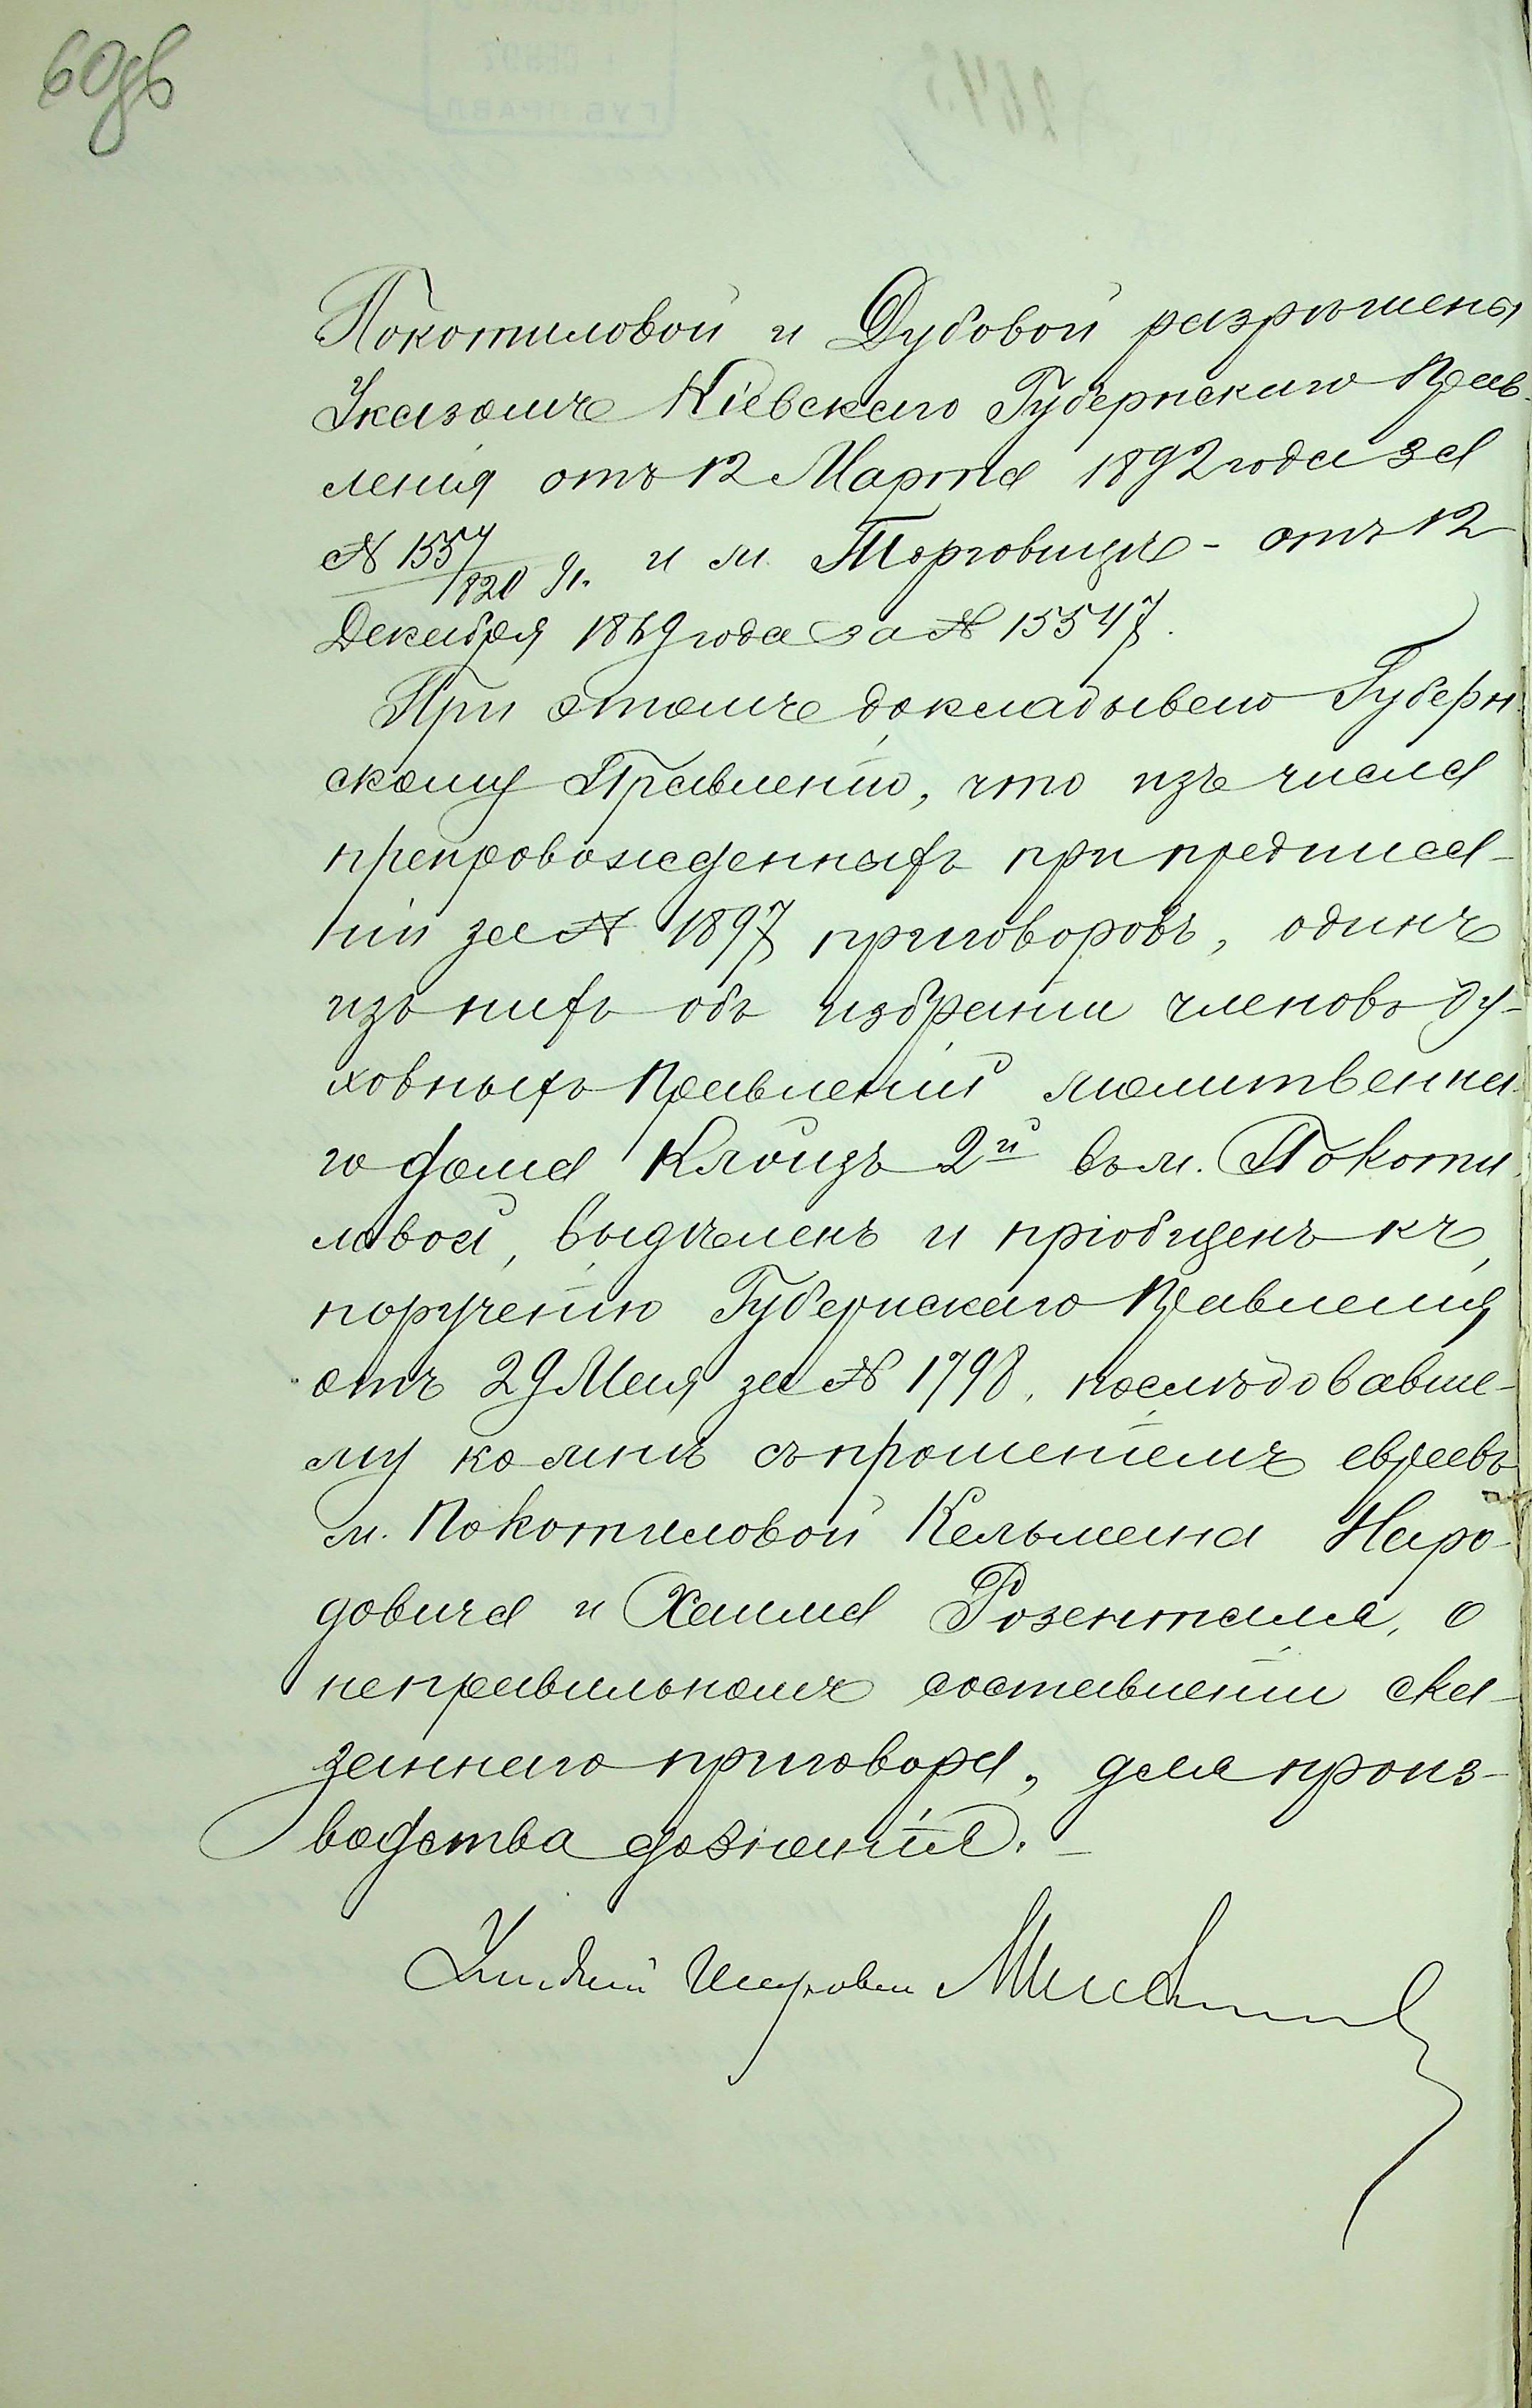 60об
Покотиловой и Дубовой разрѣшены
Указомъ Кіевскаго Губернскаго Прав-
ленія отъ 12 Марта 1892 года за
№ 1557/820 и м. Торговицѣ - отъ 12
Декабря 1869 года за № 15547.
При этомъ докладываю Губерн
скому Правленію, что изъ числа
препровожденныхъ при предписа-
ніи за № 1897 приговоровъ, одинъ
изъ нихъ объ избраніи членовъ ду-
ховныхъ Правленій молитвенна
го дома Клойзъ 2й въ м. Покоти
ловой, выдѣленъ и пріобщенъ къ
порученію Губернскаго Правленія
отъ 29 Мая за № 1798, послѣдовавше-
му ко мнѣ съ прошеніемъ евреевъ
м. Покотиловой Кельмана Наро-
довича и Хаима Розентала, о
неправильномъ составленіи ска-
заннаго приговора, для произ-
водства дознанія. -
Уѣздный Исправникъ